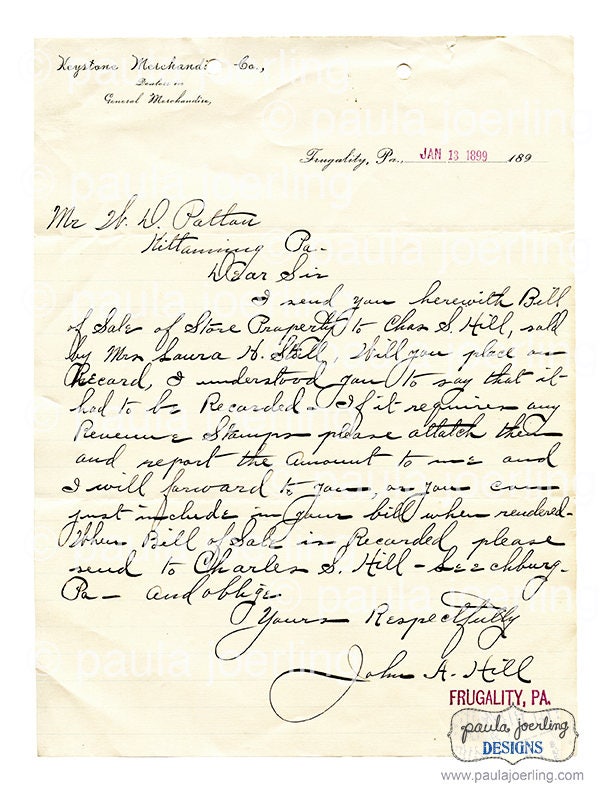 Keystone Merchandi Co.,
Dealers in
General Merchandise,
Frugality, Pa., JAN 13 1899 189
Mr W. D. Patton
Kittanning Pa-
Dear Sir
I send you herewith Bill
of Sale of Store Property to Chas S. Hill, sold
by Mrs Laura H. Still, Will you place on
Record, I understood you to say that it
had to be Recorded - If it requires any
Revenue Stamps please attatch them
and report the amount to me and
I will forward to you, or you can
just include in your bill when rendered-
When Bill of Sale is Recorded please
send to Charles S. Hill - Leechburg-
Pa - and oblige
Yours Respectfully
John A. Hill
FRUGALITY, PA.
paula joerling
DESIGNS
www.paulajoerling.com
© paula joerling